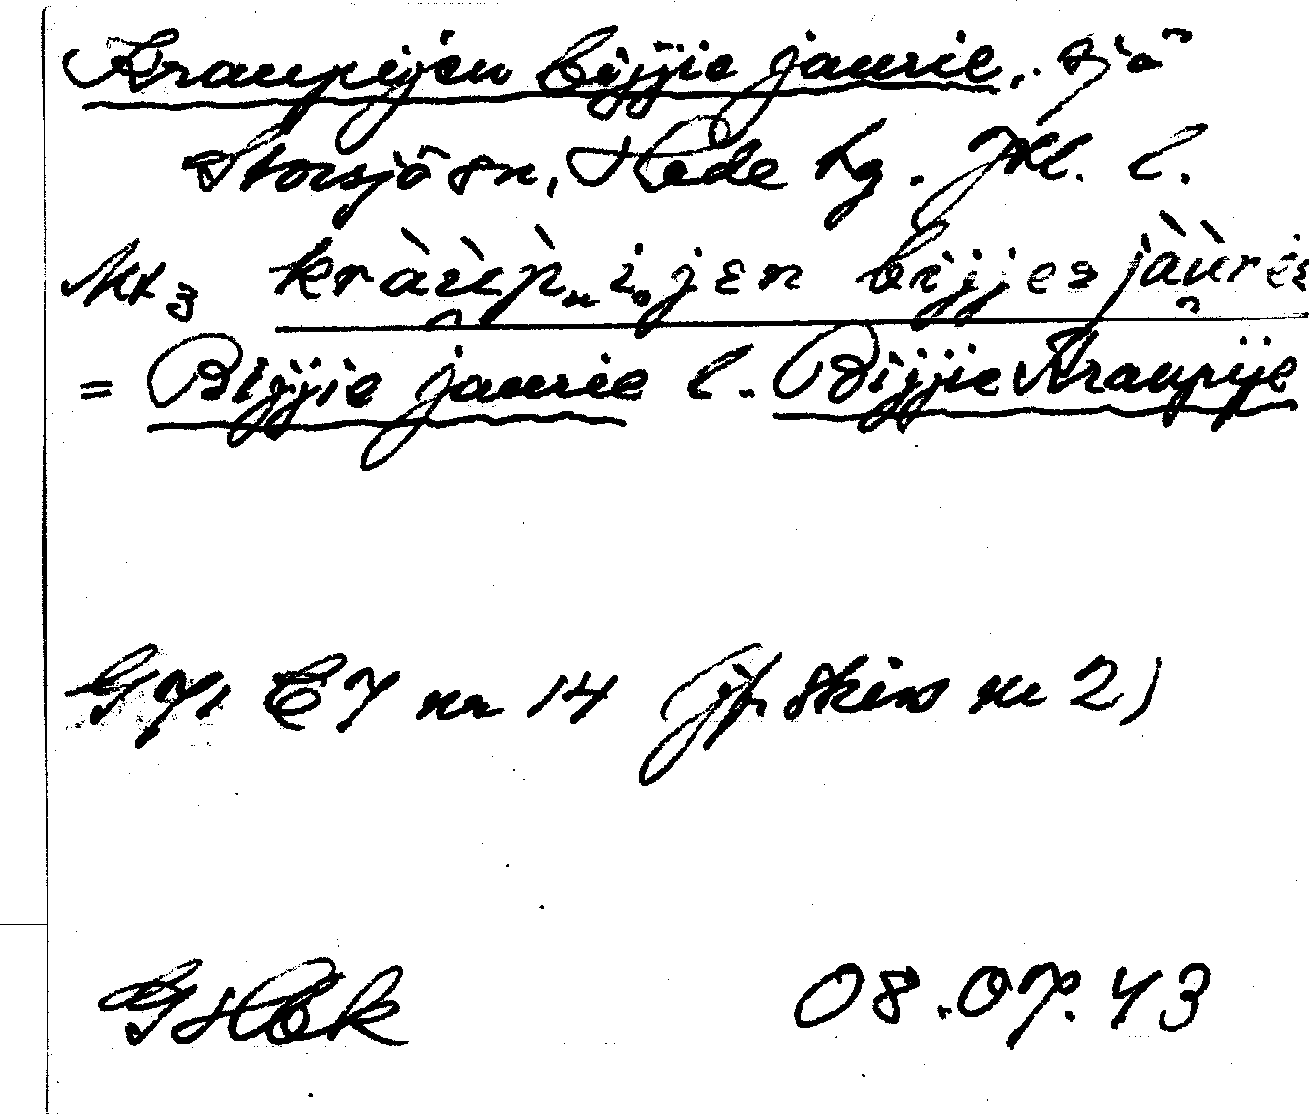 Kraupijen bijjie jaurie, sjö
Storsjö sn, Hede hg. Jtl. l.
Mt3 kràùp„i.jɛn bijjeə jàùrie
= Bijjie jaurie l. Bijjie Kraupije
Gga E7 nr 14 (jfr skiss nr 2)
GHbk 08.07.43